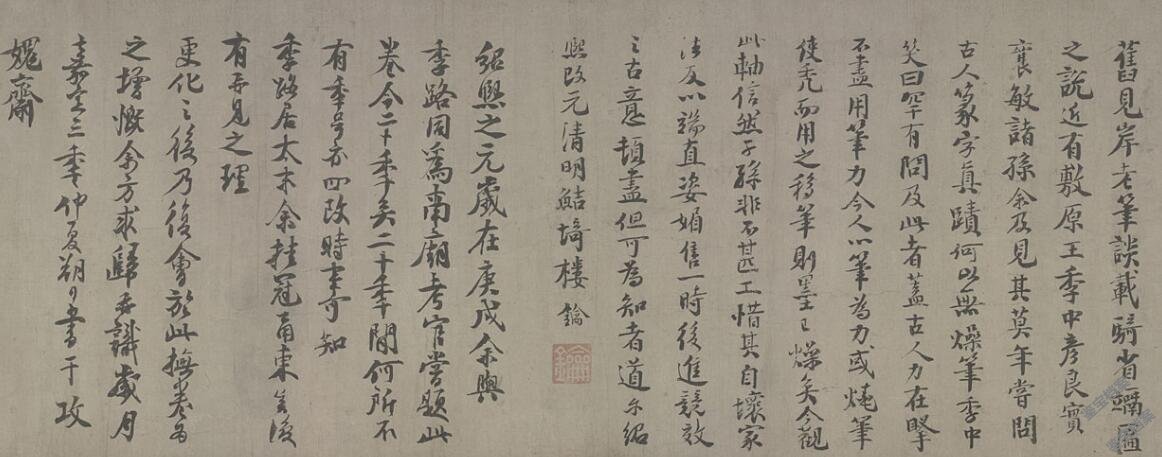 舊見岸老筆談載騎省螎匾
之說近有敷原王季中彥良實
襄敏諸孫余及見其莫年嘗問
古人篆字真蹟何以無燥筆季中
笑曰罕有問及此者蓋古人力在擥
不盡用筆力今人以筆為力或燒筆
使禿而用之移筆則墨已燥矣今觀
此軸信然子孫非不甚工惜其自壞家
法反以端直姿媚售一時後進競效
之古意頓盡但可為知者道尔紹
熙改元清明鮚埼樓鑰
紹熙之元歲在庚戌余與
季路同為南廟考官嘗題此
卷今二十季矣二十季間何所不
有季号亦四改時事可知
季路居太末余挂冠甬東豈復
有再見之理
更化之後乃復會於此撫卷為
之增慨余方求歸再識歲月
嘉定三季仲夏朔日書于攻
媿齋